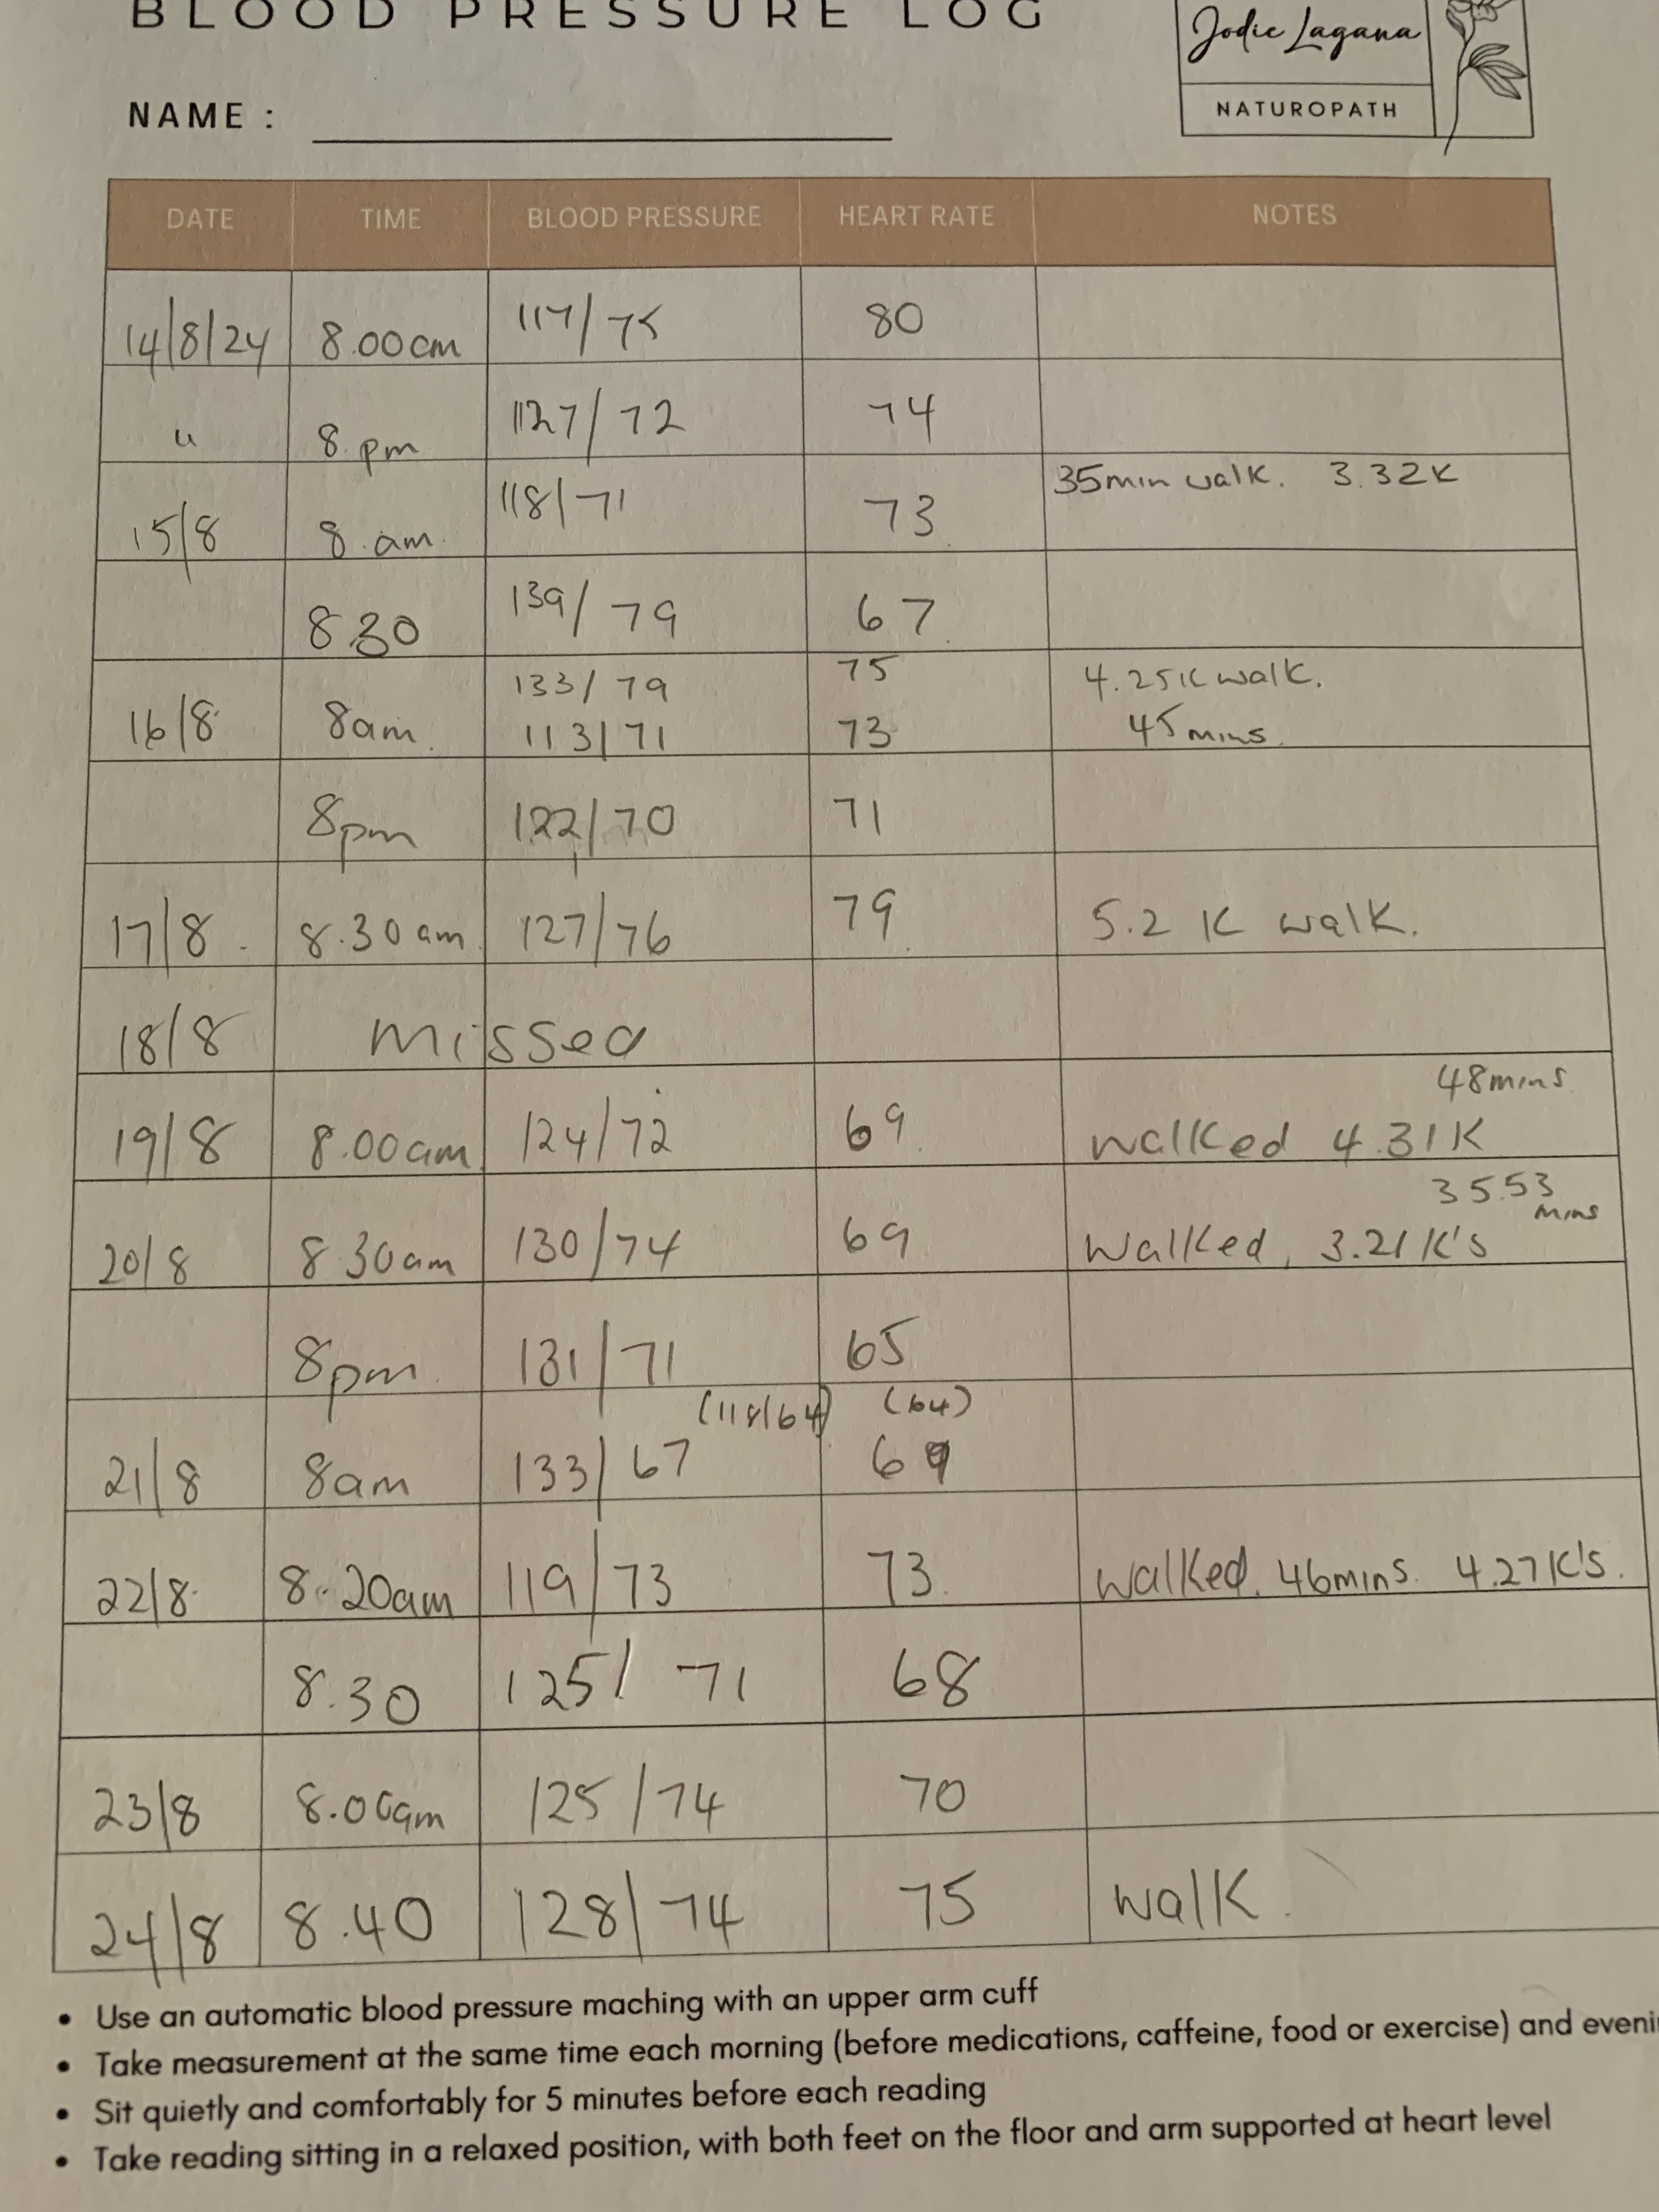 BLOOD PRESSURE LOG
Jodie Lagana
NATUROPATH
NAME :
DATE TIME BLOOD PRESSURE HEART RATE NOTES
14/8/24 8.00am 117/75 80
" 8.pm 127/72 74
15/8 8.am 118/71 73 35min walk. 3.32K
8.30 139/79 67
133/79 75 4.25K walk.
16/8 8am. 113/71 73 45mins.
8pm 122/70 71
17/8. 8.30am. 127/76 79. 5.2 K walk.
18/8 missed
48mins.
19/8 8.00am 124/72 69. walked 4.31K
35.53
mins
20/8 8.30am 130/74 69 Walked, 3.21K's
8pm. 131/71 65
(118/64) (64)
21/8 8am 133/67 69
22/8. 8.20am 119/73 73. Walked. 46mins. 4.27K's.
8.30 125/71 68
23/8 8.00am 125/74 70
24/8 8.40 128/74 75 walk.
• Use an automatic blood pressure maching with an upper arm cuff
• Take measurement at the same time each morning (before medications, caffeine, food or exercise) and eveni
• Sit quietly and comfortably for 5 minutes before each reading
• Take reading sitting in a relaxed position, with both feet on the floor and arm supported at heart level